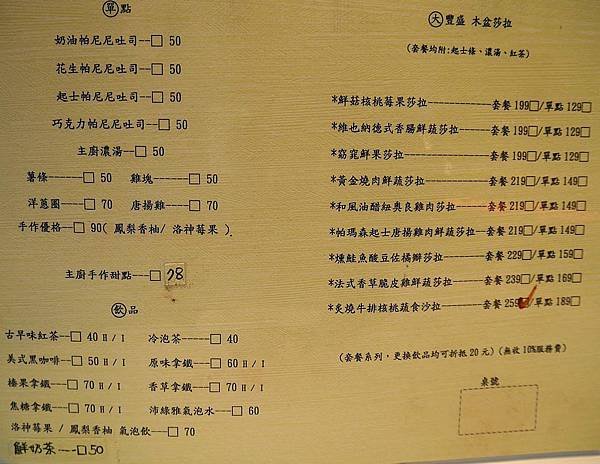 單點
奶油帕尼尼吐司--□ 50
花生帕尼尼吐司--□ 50
起士帕尼尼吐司--□ 50
巧克力帕尼尼吐司--□ 50
主廚濃湯--□ 50
薯條-----□ 50 雞塊------□ 50
洋蔥圈----□ 70 唐揚雞----□ 70
手作優格--□ 90(鳳梨香柚/洛神莓果)
主廚手作甜點---□ 78
飲品
古早味紅茶--□ 40 H/I 冷泡茶----□ 40
美式黑咖啡--□ 50 H/I 原味拿鐵---□ 60 H/I
榛果拿鐵---□ 70 H/I 香草拿鐵---□ 70 H/I
焦糖拿鐵---□ 70 H/I 沛綠雅氣泡水--□ 60
洛神莓果 / 鳳梨香柚 氣泡飲--□ 70
鮮奶茶---□50
大豐盛 木盆莎拉
(套餐均附:起士條、濃湯、紅茶)
*鮮菇核桃莓果莎拉------------套餐 199□/單點 129□
*維也納德式香腸鮮蔬莎拉-------套餐 199□/單點 129□
*窈窕鮮果莎拉---------------套餐 199□/單點 129□
*黃金燒肉鮮蔬莎拉-----------套餐 219□/單點 149□
*和風油醋紐奧良雞肉莎拉------套餐 219□/單點 149□
*帕瑪森起士唐揚雞肉鮮蔬莎拉---套餐 219□/單點 149□
*燻鮭魚酸豆佐橘瓣莎拉-------套餐 229□/單點 159□
*法式香草脆皮雞鮮蔬莎拉-----套餐 239□/單點 169□
*炙燒牛排核桃蔬食沙拉------套餐 259□/單點 189□
(套餐系列,更換飲品均可折抵 20 元)(無收 10%服務費)
桌號